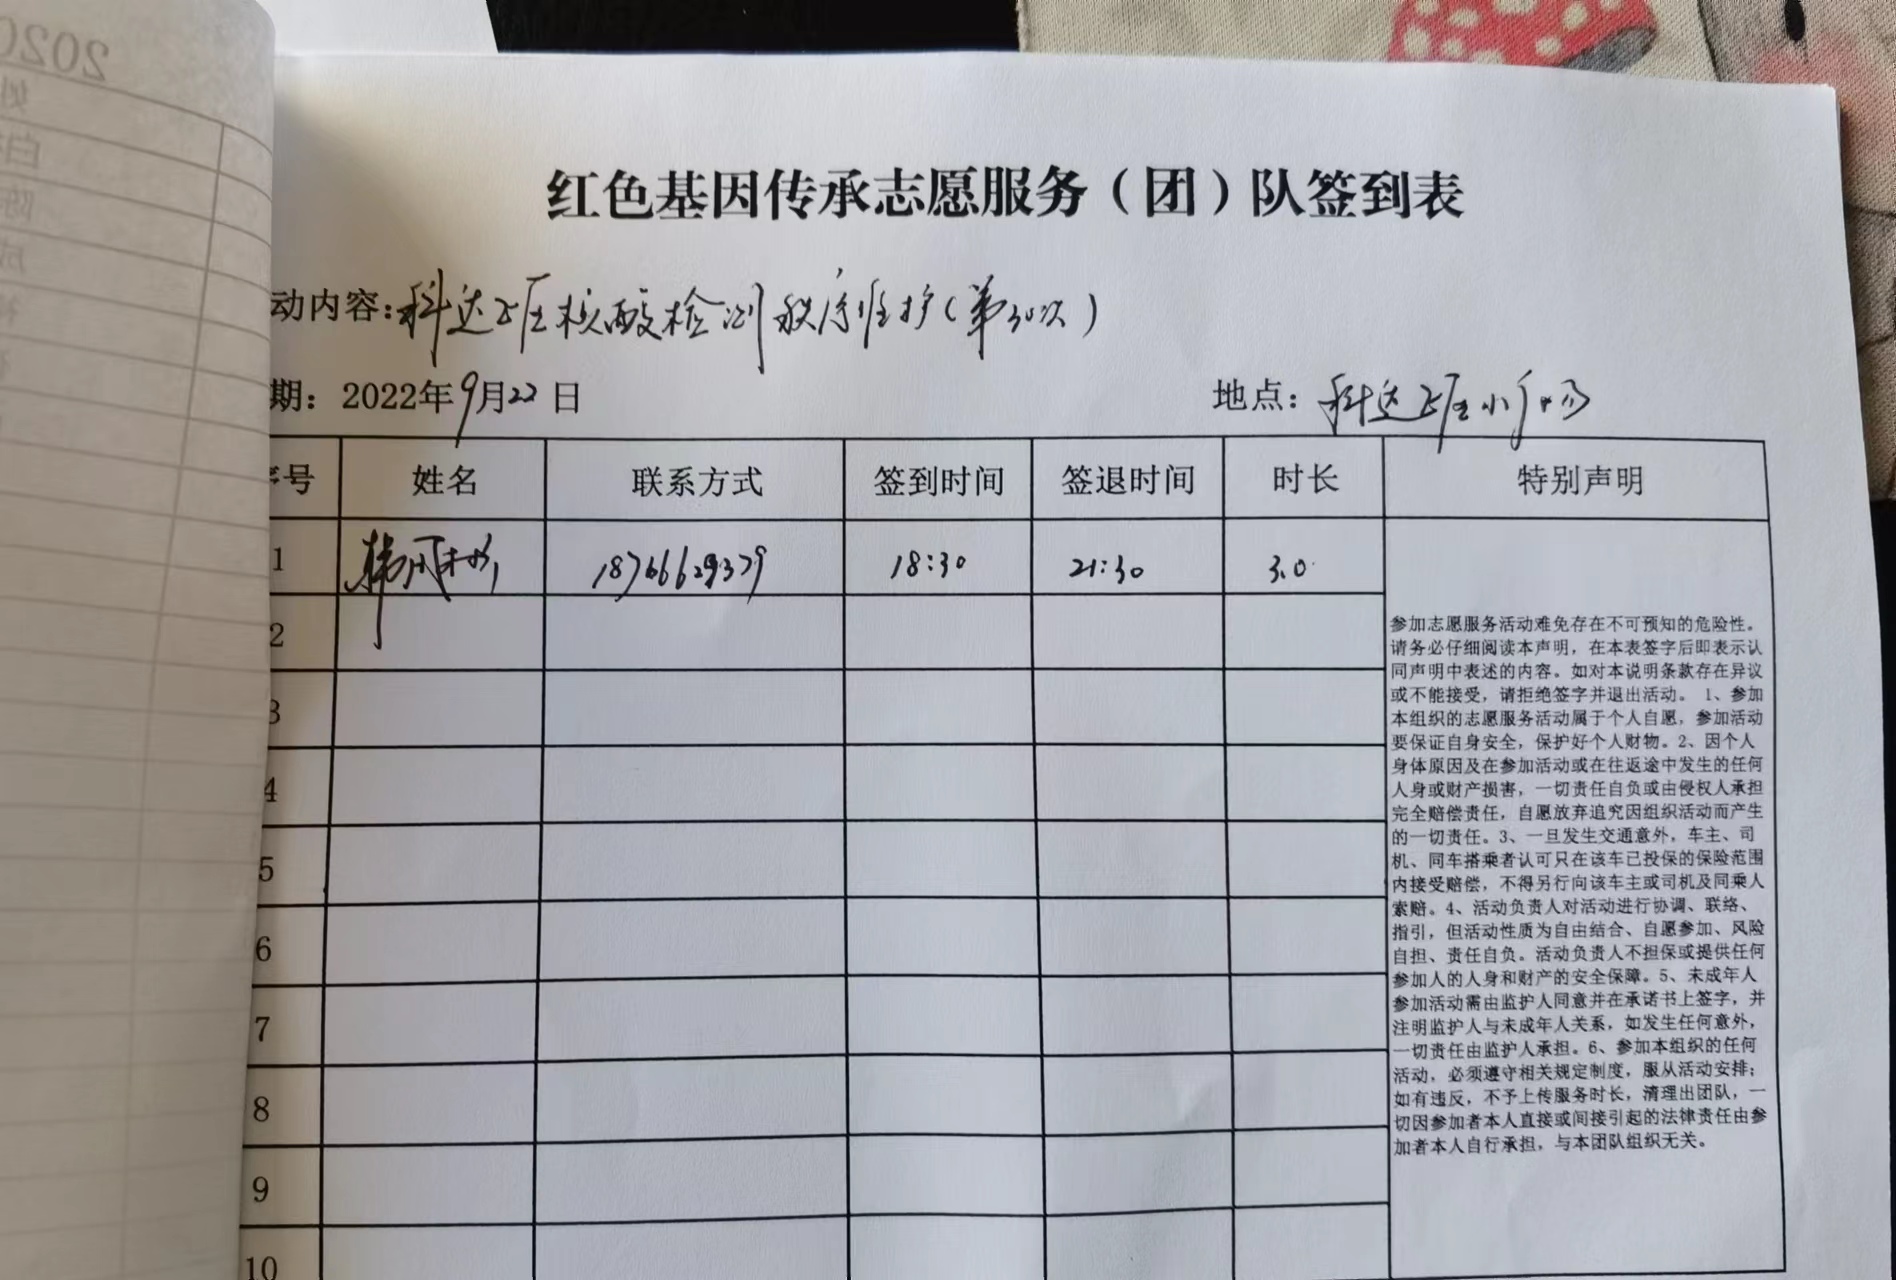 2020
红色基因传承志愿服务（团）队签到表
动内容:科达社区核酸检测秩序维护(第30次)
期：2022年9月22日
地点：科达社区小广场
序号 姓名 联系方式 签到时间 签退时间 时长 特别声明
1 韩 18766629379 18:30 21:30 3.0
2
3
4
5
6
7
8
9
10
参加志愿服务活动难免存在不可预知的危险性。
请务必仔细阅读本声明，在本表签字后即表示认
同声明中表述的内容。如对本说明条款存在异议
或不能接受，请拒绝签字并退出活动。 1、参加
本组织的志愿服务活动属于个人自愿，参加活动
要保证自身安全，保护好个人财物。2、因个人
身体原因及在参加活动或在往返途中发生的任何
人身或财产损害，一切责任自负或由侵权人承担
完全赔偿责任，自愿放弃追究因组织活动而产生
的一切责任。3、一旦发生交通意外，车主、司
机、同车搭乘者认可只在该车已投保的保险范围
内接受赔偿，不得另行向该车主或司机及同乘人
索赔。4、活动负责人对活动进行协调、联络、
指引，但活动性质为自由结合、自愿参加、风险
自担、责任自负。活动负责人不担保或提供任何
参加人的人身和财产的安全保障。5、未成年人
参加活动需由监护人同意并在承诺书上签字，并
注明监护人与未成年人关系，如发生任何意外，
一切责任由监护人承担。6、参加本组织的任何
活动，必须遵守相关规定制度，服从活动安排；
如有违反，不予上传服务时长，清理出团队，一
切因参加者本人直接或间接引起的法律责任由参
加者本人自行承担，与本团队组织无关。